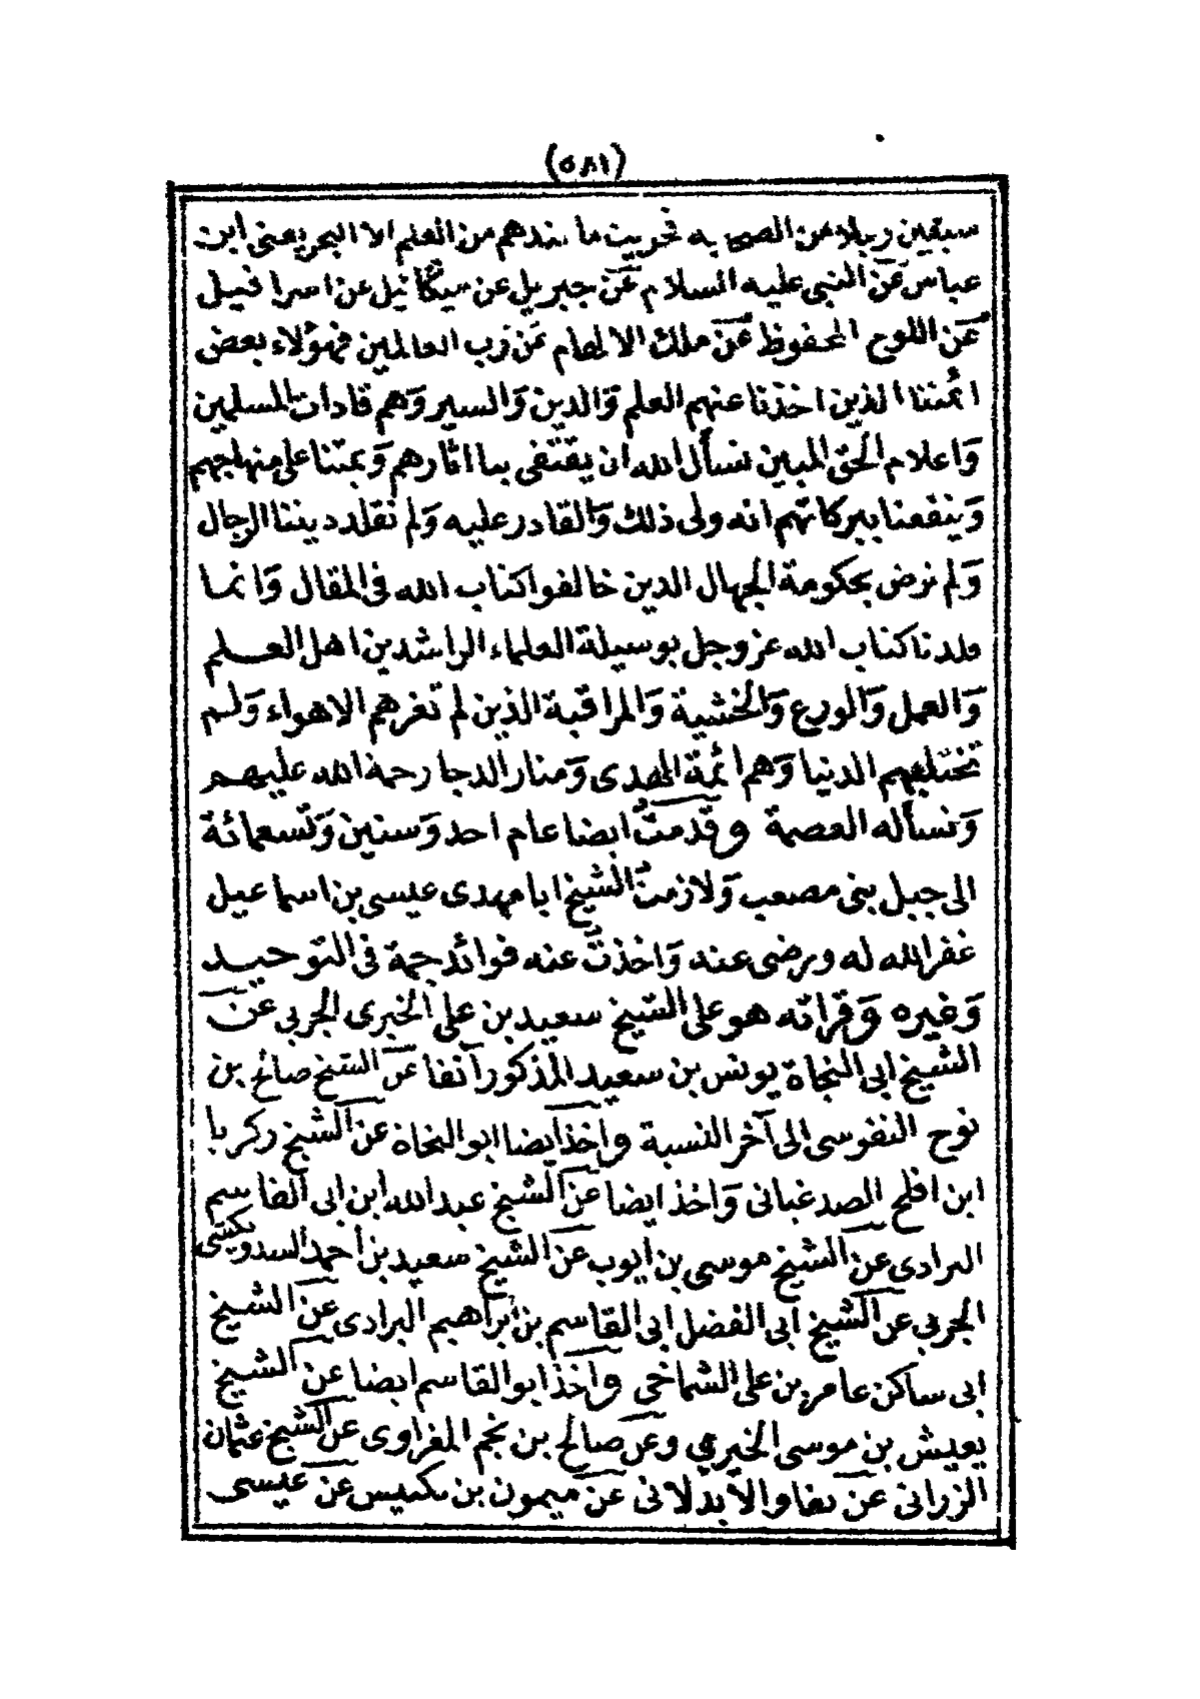 (٥٨١)
سبعين رجلا من الصحابة فحويت ما عندهم من العلم الا البحر يعنى ابن
عباس عن النبى عليه السلام عن جبريل عن ميكائيل عن اسرافيل
عن اللوح المحفوظ عن ملك الالهام عن رب العالمين فهؤلاء بعض
ائمتنا الذين اخذنا عنهم العلم والدين والسير وهم قادات المسلمين
واعلام الحق المبين نسأل الله ان يقتفى بنا اثارهم ويمتنا على منهاجهم
وينفعنا ببركاتهم انه ولى ذلك والقادر عليه ولم نقلد ديننا الرجال
ولم نرض بحكومة الجهال الدين خالفوا كتاب الله فى المقال وانما
قلدنا كتاب الله عز وجل بوسيلة العلماء الراشدين اهل العلم
والعمل والورع والخشية والمراقبة الذين لم تغرهم الاهواء ولم
تختلهم الدنيا وهم ائمة الهدى ومنار الدجا رحمة الله عليهم
ونسأله العصمة وقدمت ايضا عام احد وستين وتسعمائة
الى جبل بنى مصعب ولازمت الشيخ ابا مهدى عيسى بن اسماعيل
غفر الله له ورضى عنه واخذت عنه فوائد جمة فى التوحيد
وغيره وقراته هو على الشيخ سعيد بن على الخبرى الجربى عن
الشيخ ابى النجاة يونس بن سعيد المذكور آنفا عن الشيخ صالح بن
نوح النفوسى الى آخر النسبة واخذ ايضا ابو النجاة عن الشيخ زكريا
ابن افلح الصدغيانى واخذ ايضا عن الشيخ عبد الله ابن ابى القاسم
البرادى عن الشيخ موسى بن ايوب عن الشيخ سعيد بن أحمد السدويكشى
الجربى عن الشيخ ابى الفضل ابى القاسم بن ابراهيم البرادى عن الشيخ
ابى ساكن عامر بن على الشماخى واخذ ابو القاسم ايضا عن الشيخ
يعيش بن موسى الخيرى وعن صالح بن نجم المغراوى عن الشيخ عثمان
الزراتى عن الابدلانى عن ميمون بن عن عيسى